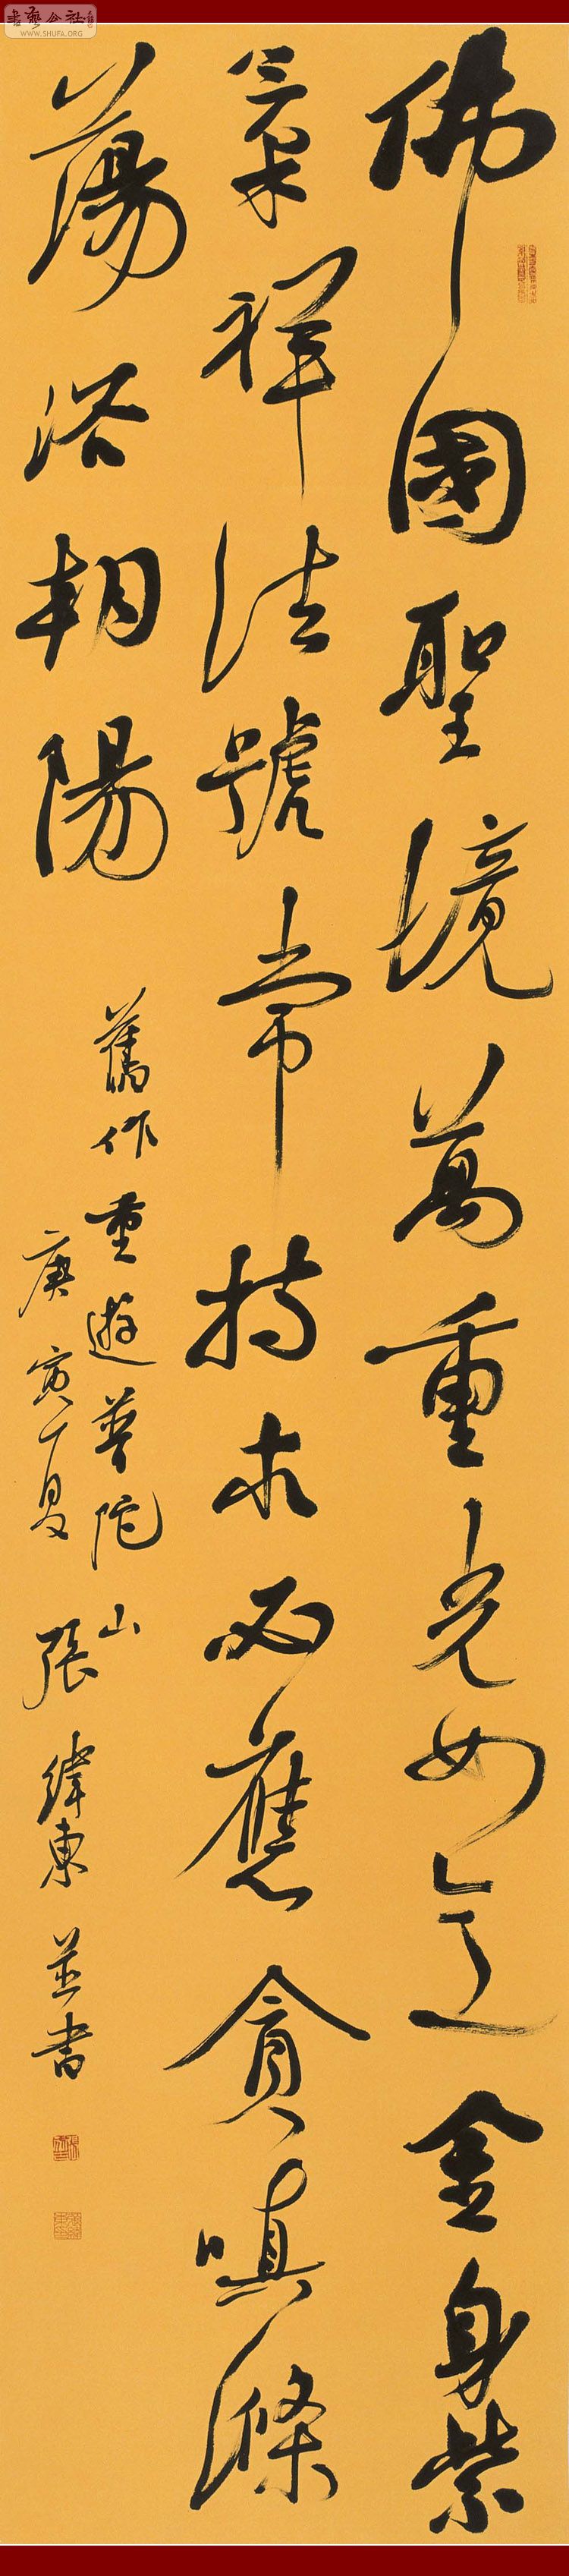 佛國聖境萬重光如意金身紫
氣祥法號常持求必應貪嗔滌
蕩浴朝陽
舊作重遊普陀山
庚寅夏張緯東並書
書藝公社
WWW.SHUFA.ORG